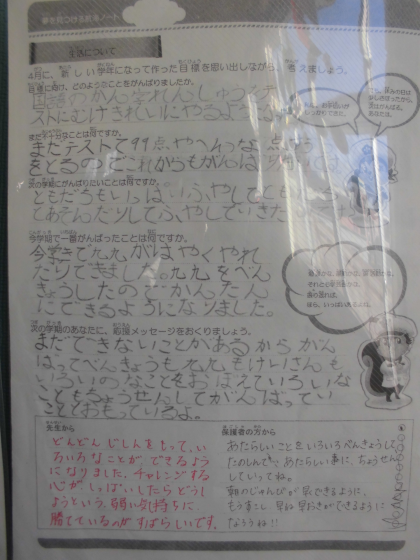 夢を見つけるためノート
生活について
4月に、新しい学年になって作った目標を思い出しながら、考えましょう。
目標に向け、どのようなことをがんばりましたか。
国語のかん字れんしゅうをテ
ストにむけきれいにやるよ
まだ
なことは何ですか。
まだテストで99点や
点
をとるのでこれからもがんばり
次の学期にがんばりたいことは何ですか。
ともだちもいっぱいふやしてとも
てあそんだりしてふやしていきた
今学期で一番がんばったことは何ですか。
今学きで九九がはやくやれ
たりできました。九九をべん
きょうしたのでかんたん
にできるようになりました。
次の学期のあなたに、応援メッセージをおくりましょう。
まだできないことがあるからがん
ばってべんきょうも九九もけいさんも
いろいろなことをおぼえていろいな
こともちょうせんしてがんばってい
こうとおもっているよ。
先生から
どんどんじしんをもって、い
ろいろなことができるよう
になりました。チャレンジする
心がしっぱいしたらどうし
ようという、弱い気持ちに
勝てているのがすばらしいです。
保護者の方から
あたらしいことをいろいろべんきょうして
たのしんで、あたらしい事に、ちょうせん
していってね。
朝のじゅんびが
できるように、
もうすこし早ね早おきができるように
なろうね!!